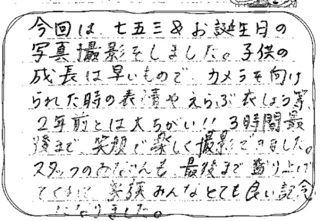 今回は七五三&お誕生日の
写真撮影をしました。子供の
成長は早いもので カメラを向け
られた時の表情やえらぶ衣しょう等、
2年前とは大ちがい!! 3時間最
後まで 笑顔で楽しく撮影できました。
スタッフのみなさんも 最後まで盛り上げ
てくれて 家族みんなとても良い記念
になりました。